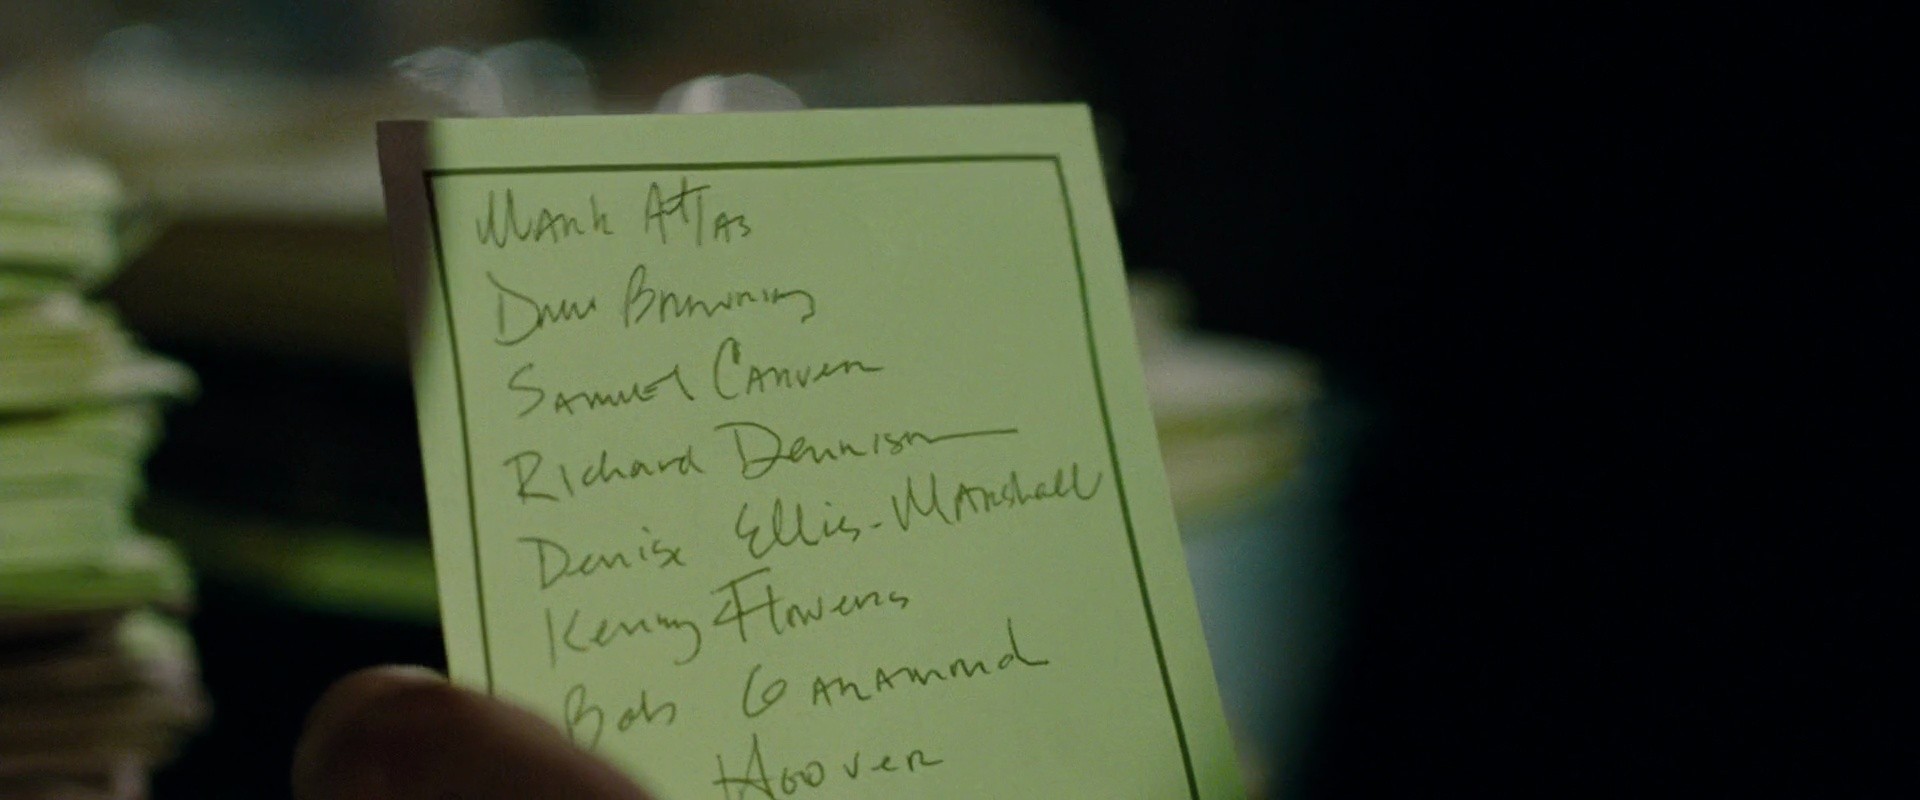 Mark Atlas
Drew Browning
Samuel Carver
Richard Dennison
Denise Ellis-Marshall
Kenny Flowers
Bob Garamond
Hoover